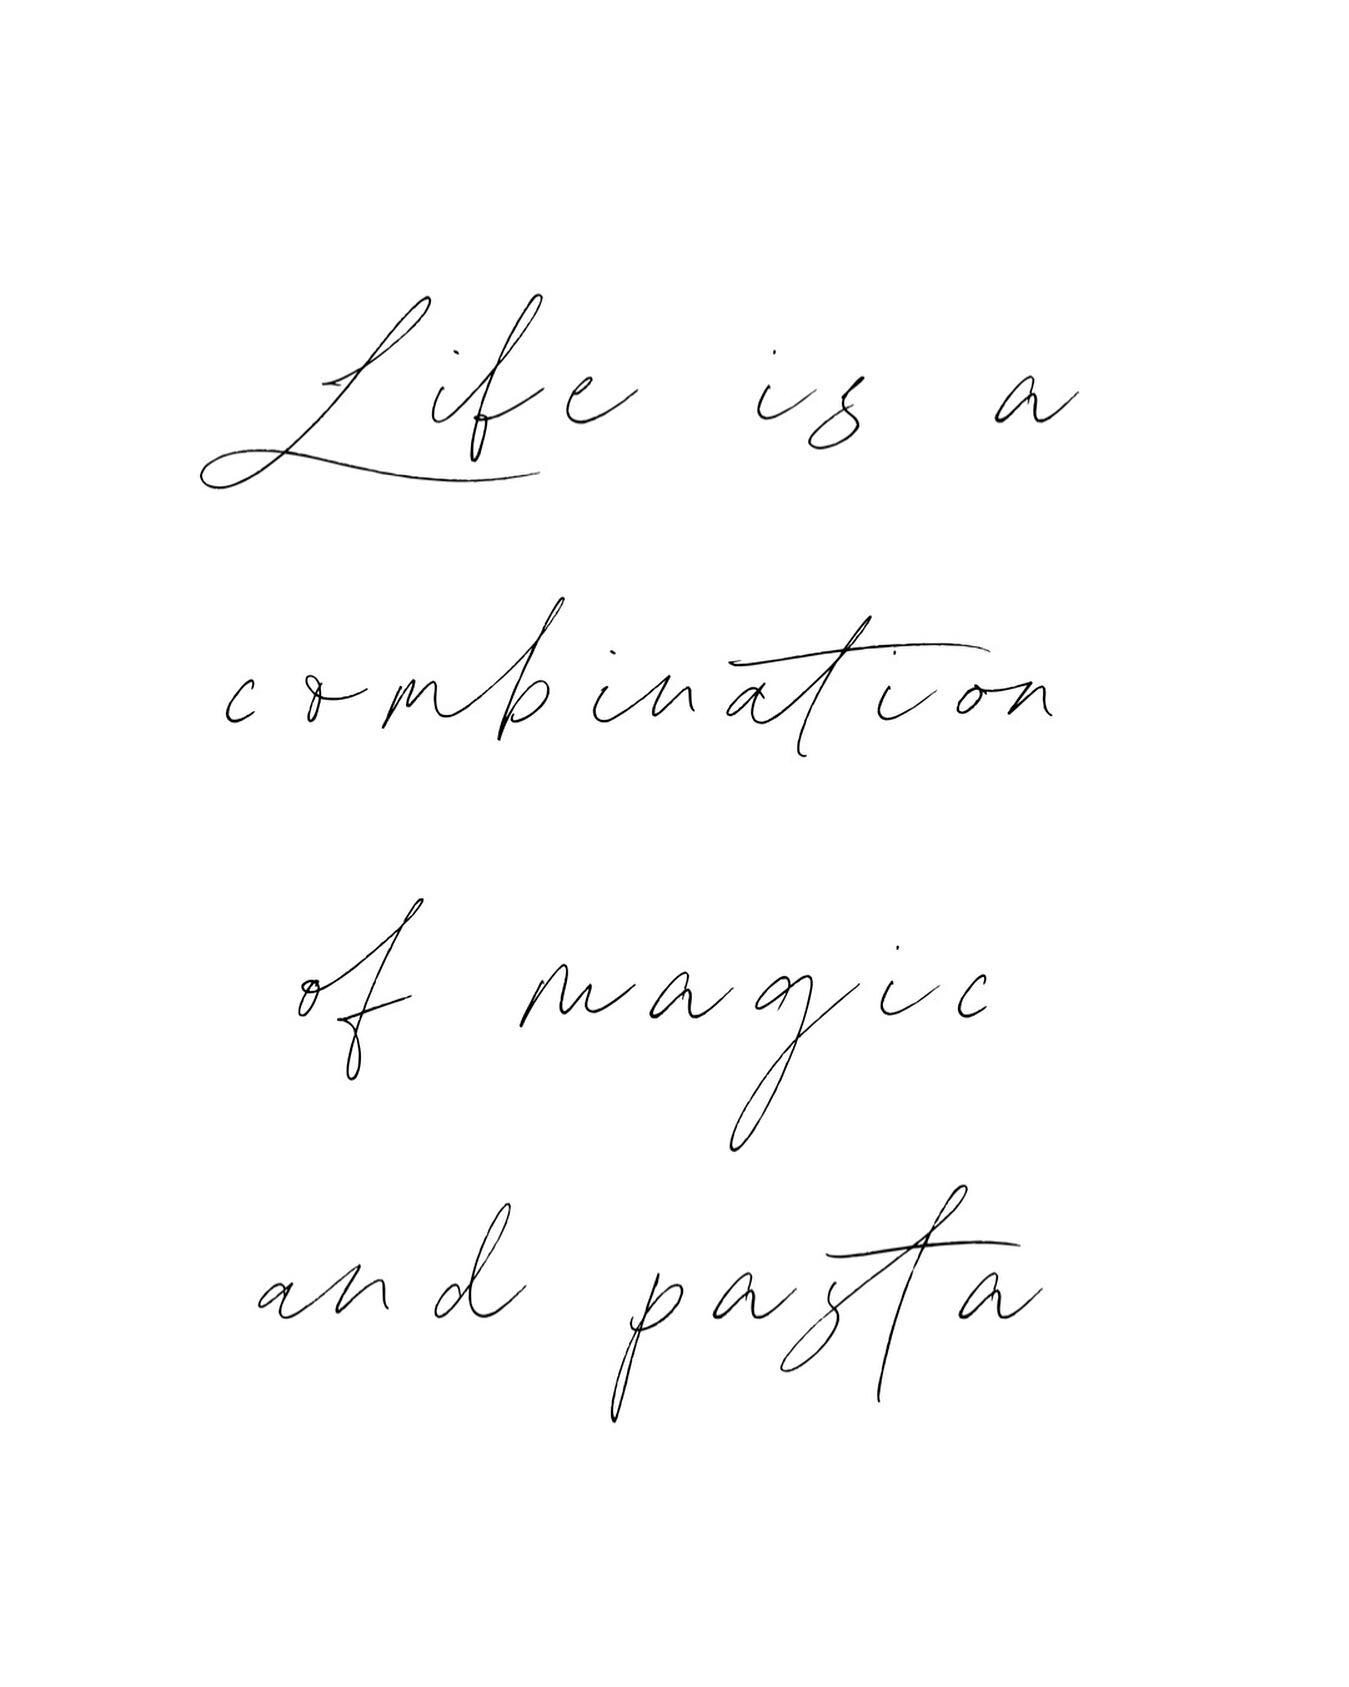 Life is a
combination
of magic
and pasta